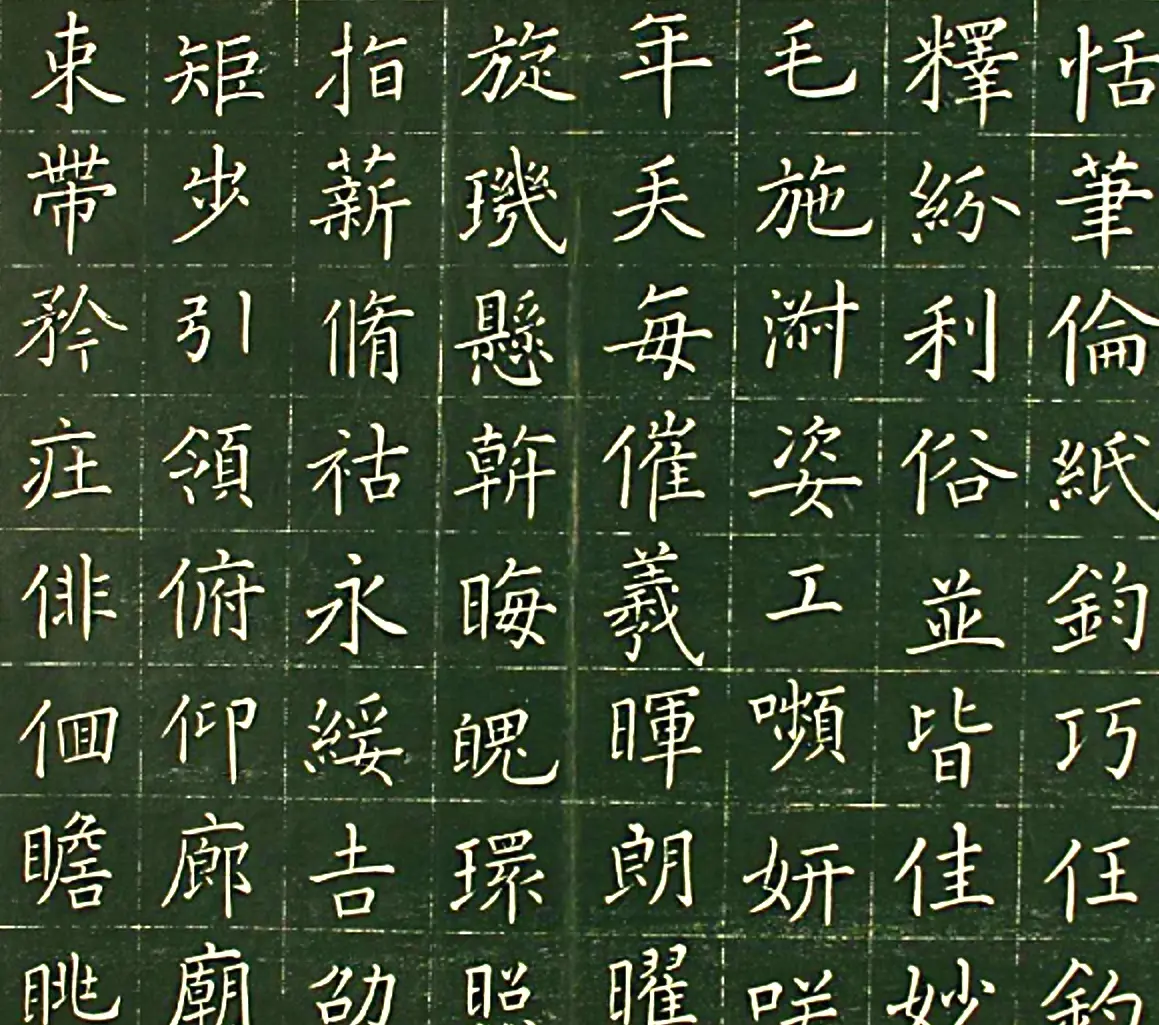 恬筆倫紙鈞巧任釣
釋紛利俗並皆佳妙
毛施淑姿工嚬妍咲
年矢每催羲暉朗曜
旋璣懸幹晦魄環照
指薪脩祜永綏吉劭
矩步引領俯仰廊廟
束帶矜庄俳佪瞻眺